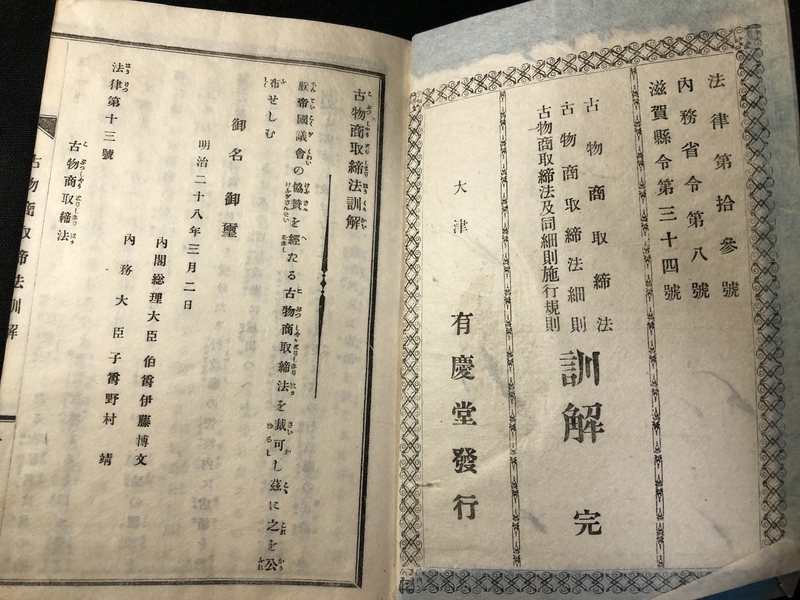 法律第拾參號
內務省令第八號
滋賀縣令第三十四號
古物商取締法
古物商取締法細則
古物商取締法及同細則施行規則
訓解 完
大津 有慶堂發行
古物商取締法訓解
朕帝國議會の協賛を經たる古物商取締法を裁可し茲に之を公
布せしむ
御名御璽
明治二十八年三月二日
內閣総理大臣 伯爵伊藤博文
內務大臣 子爵野村靖
法律第十三號
古物商取締法
古物商取締法訓解